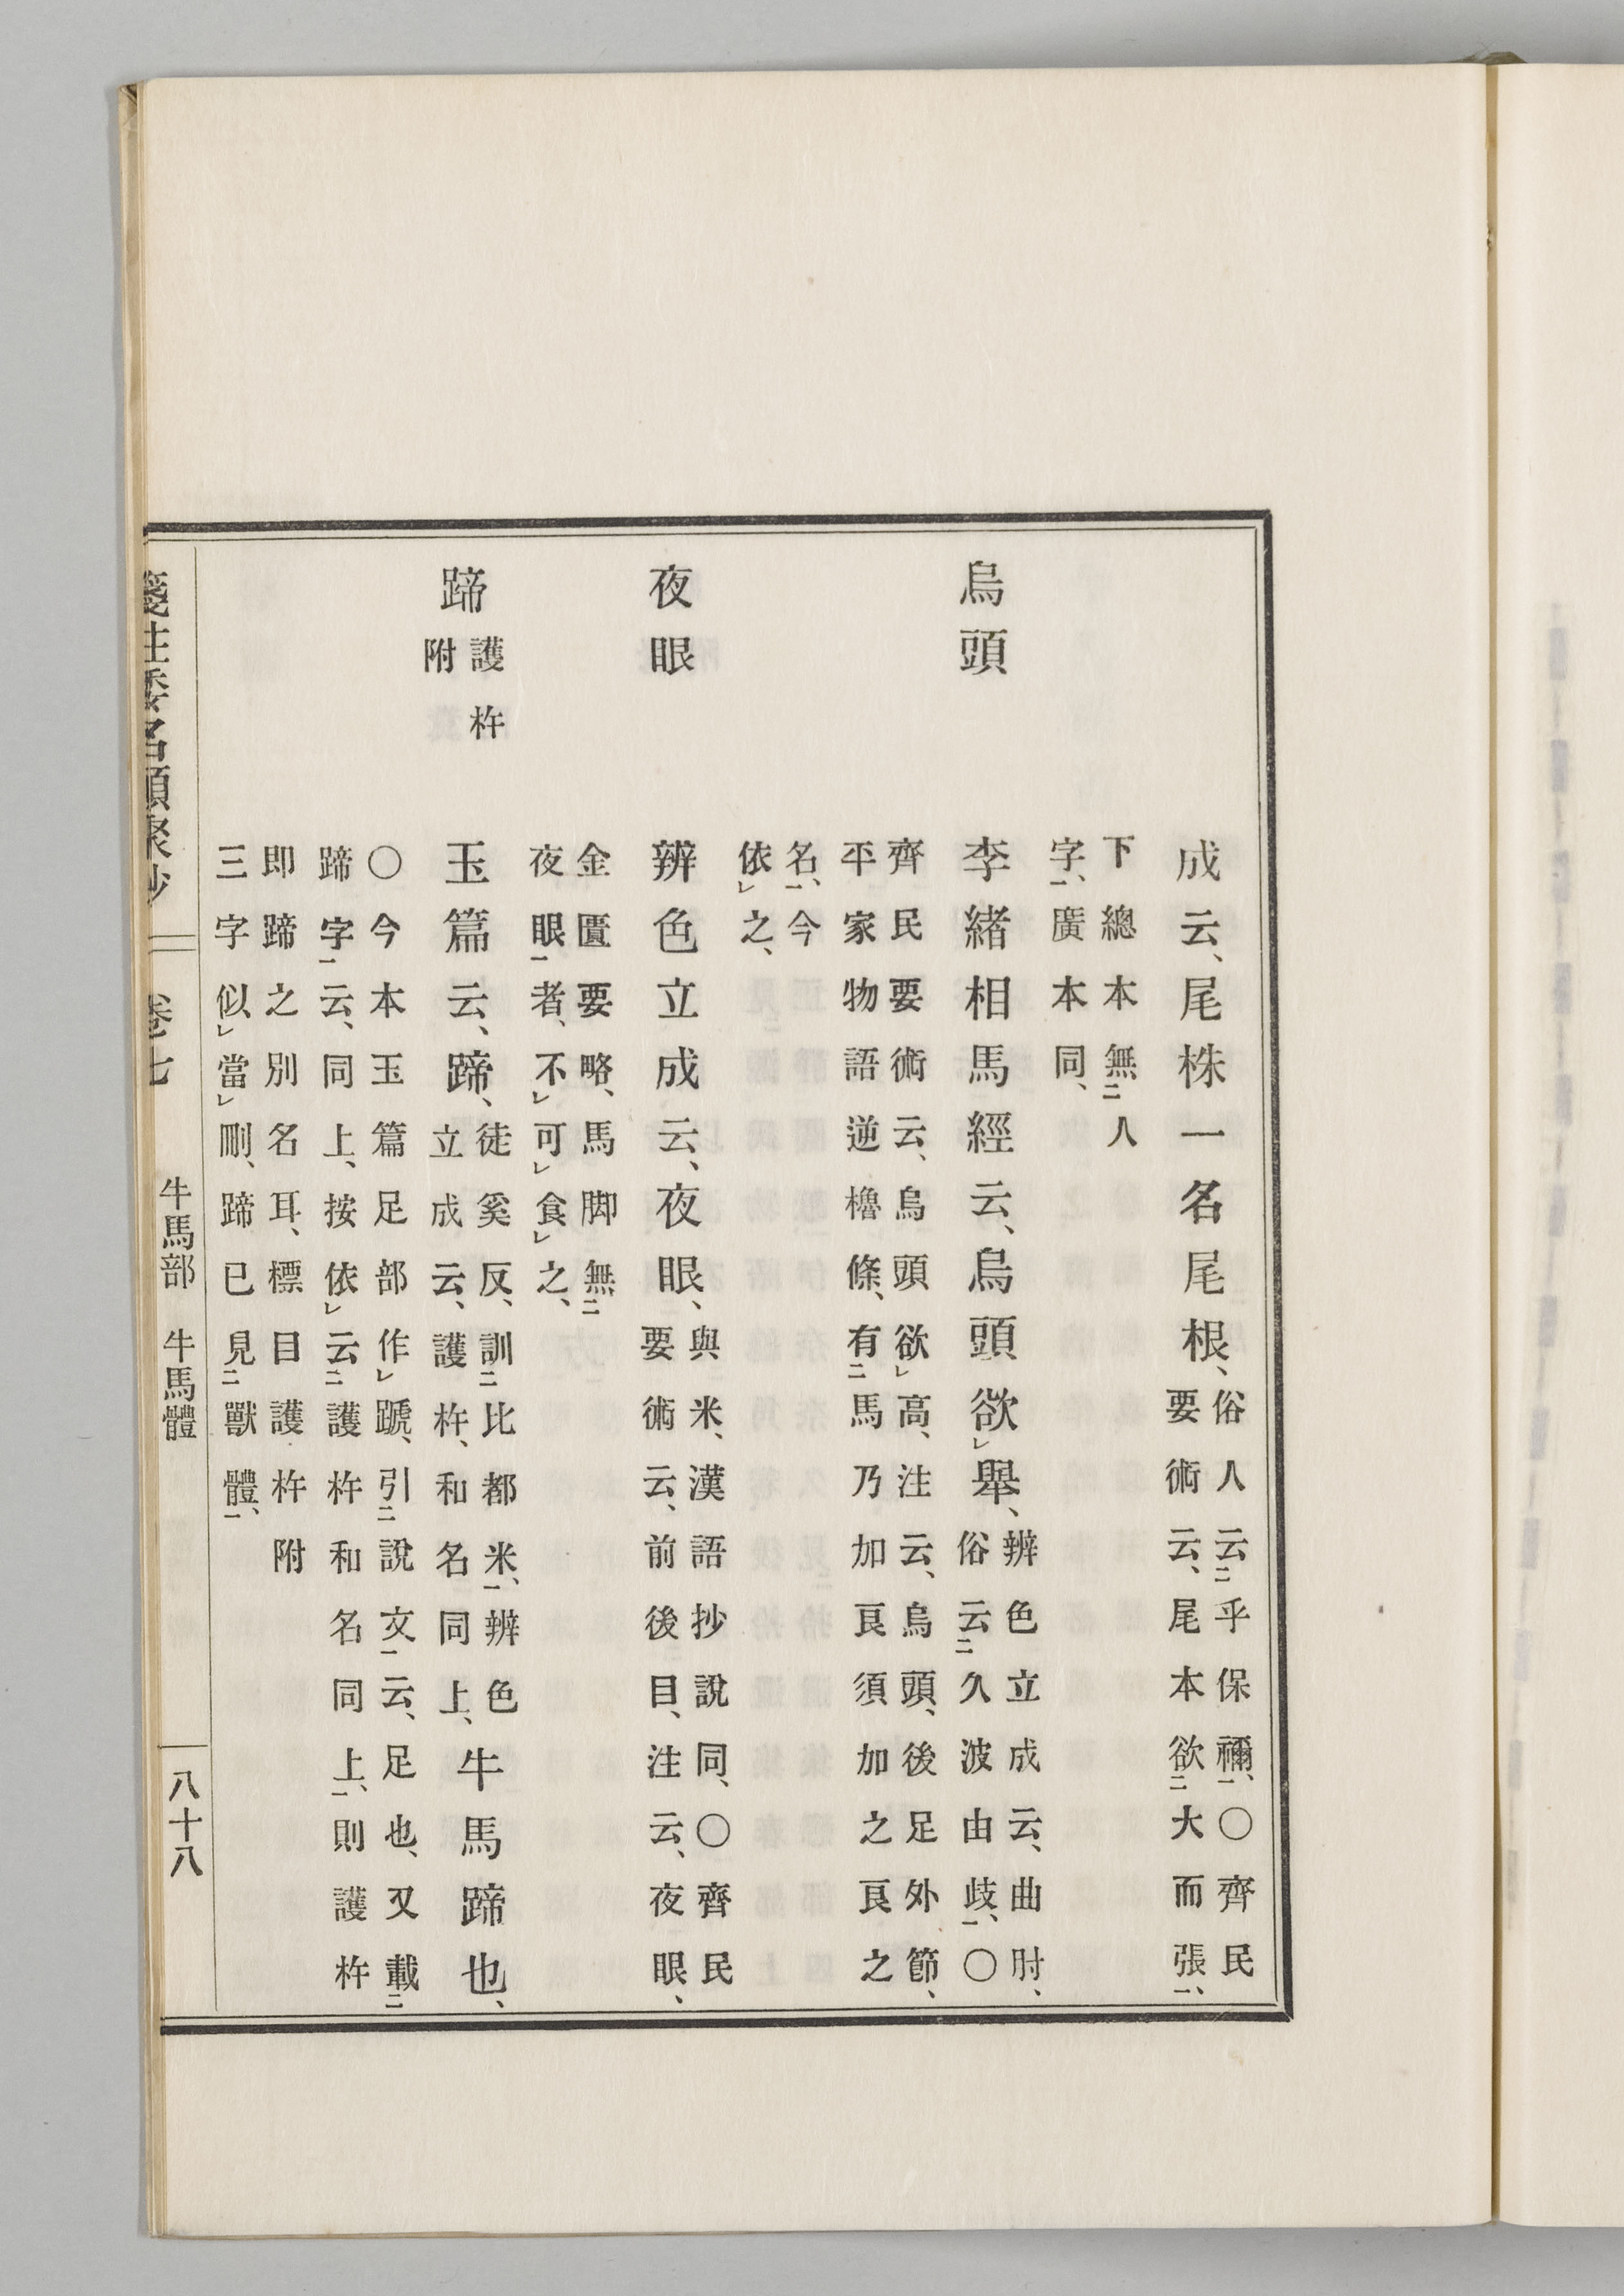 成云、尾株一名尾根、
俗人云二乎保禰一、〇齊民
要術云、尾本欲二大而張一、
下總本無二人
字一、廣本同、
烏頭
李緒相馬經云、烏頭欲レ舉、
辨色立成云、曲肘、
俗云二久波由歧一、〇
齊民要術云、烏頭欲レ高、注云、烏頭、後足外節、
平家物語逆櫓條、有二馬乃加艮須加之艮之
名一、今
依レ之、
夜眼
辨色立成云、夜眼、
與米、漢語抄說同、〇齊民
要術云、前後目、注云、夜眼、
金匱要略、馬脚無二
夜眼一者、不レ可レ食レ之、
蹄
護杵
附
玉篇云、蹄、
徒奚反、訓二比都米一、辨色
立成云、護杵、和名同上、
牛馬蹄也、
〇今本玉篇足部作レ蹏、引二說文一云、足也、又載二
蹄字一云、同上、按依レ云二護杵和名同上一、則護杵
即蹄之別名耳、標目護杵附
三字似レ當レ刪、蹄已見二獸體一、
箋注倭名類聚抄 卷七 牛馬部 牛馬體 八十八